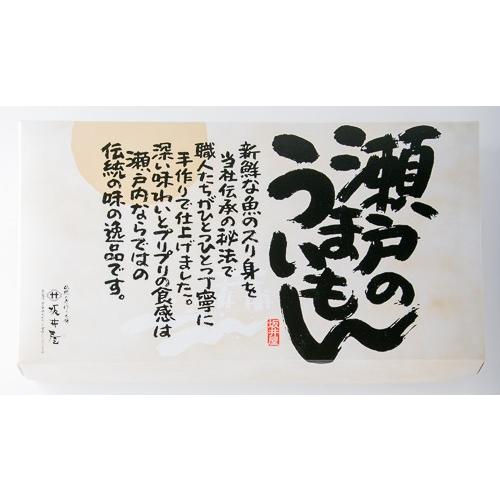 瀬戸の
うまいもん
坂井屋
新鮮な魚のスリ身を
当社伝承の秘法で
職人たちがひとつひとつ丁寧に
手作りで仕上げました。
深い味わいとプリプリの食感は
瀬戸内ならではの
伝統の味の逸品です。
坂井屋